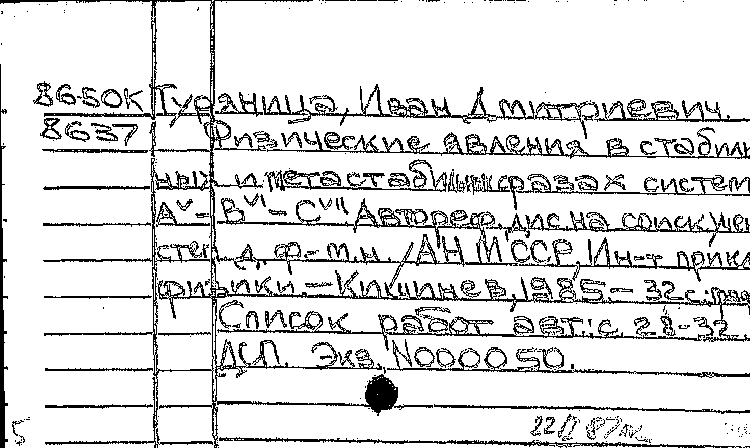 86-50К Туряница, Иван Дмитриевич.
8637 Физические явления в стабиль
ных и метастабильных фазах систем
Aᵛ-Bᵛᴵ-Cᵛᴵᴵ. Автореф. дис. на соиск. учен
степ. д. ф.-м.н. / АН МССР. Ин-т прикл
физики. – Кишинев, 1985. – 32 с.: граф
Список работ авт.: с. 28-32.
ДСП. Экз. N000050.
5